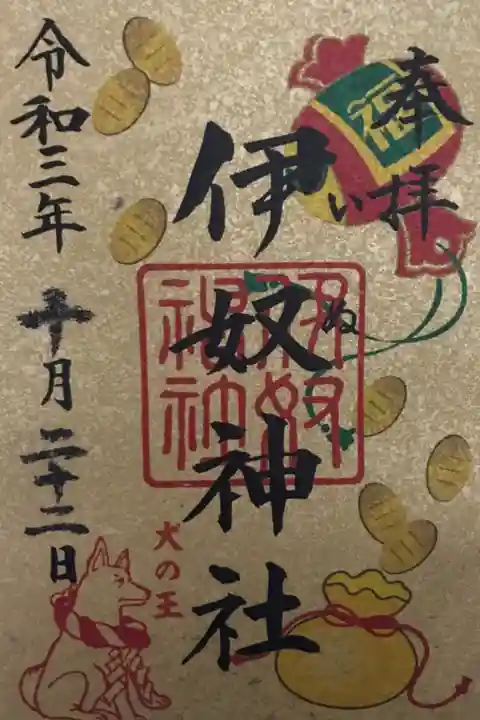 奉拝
福
伊奴神社
いぬ
伊奴神社
犬の王
令和三年 十月二十二日